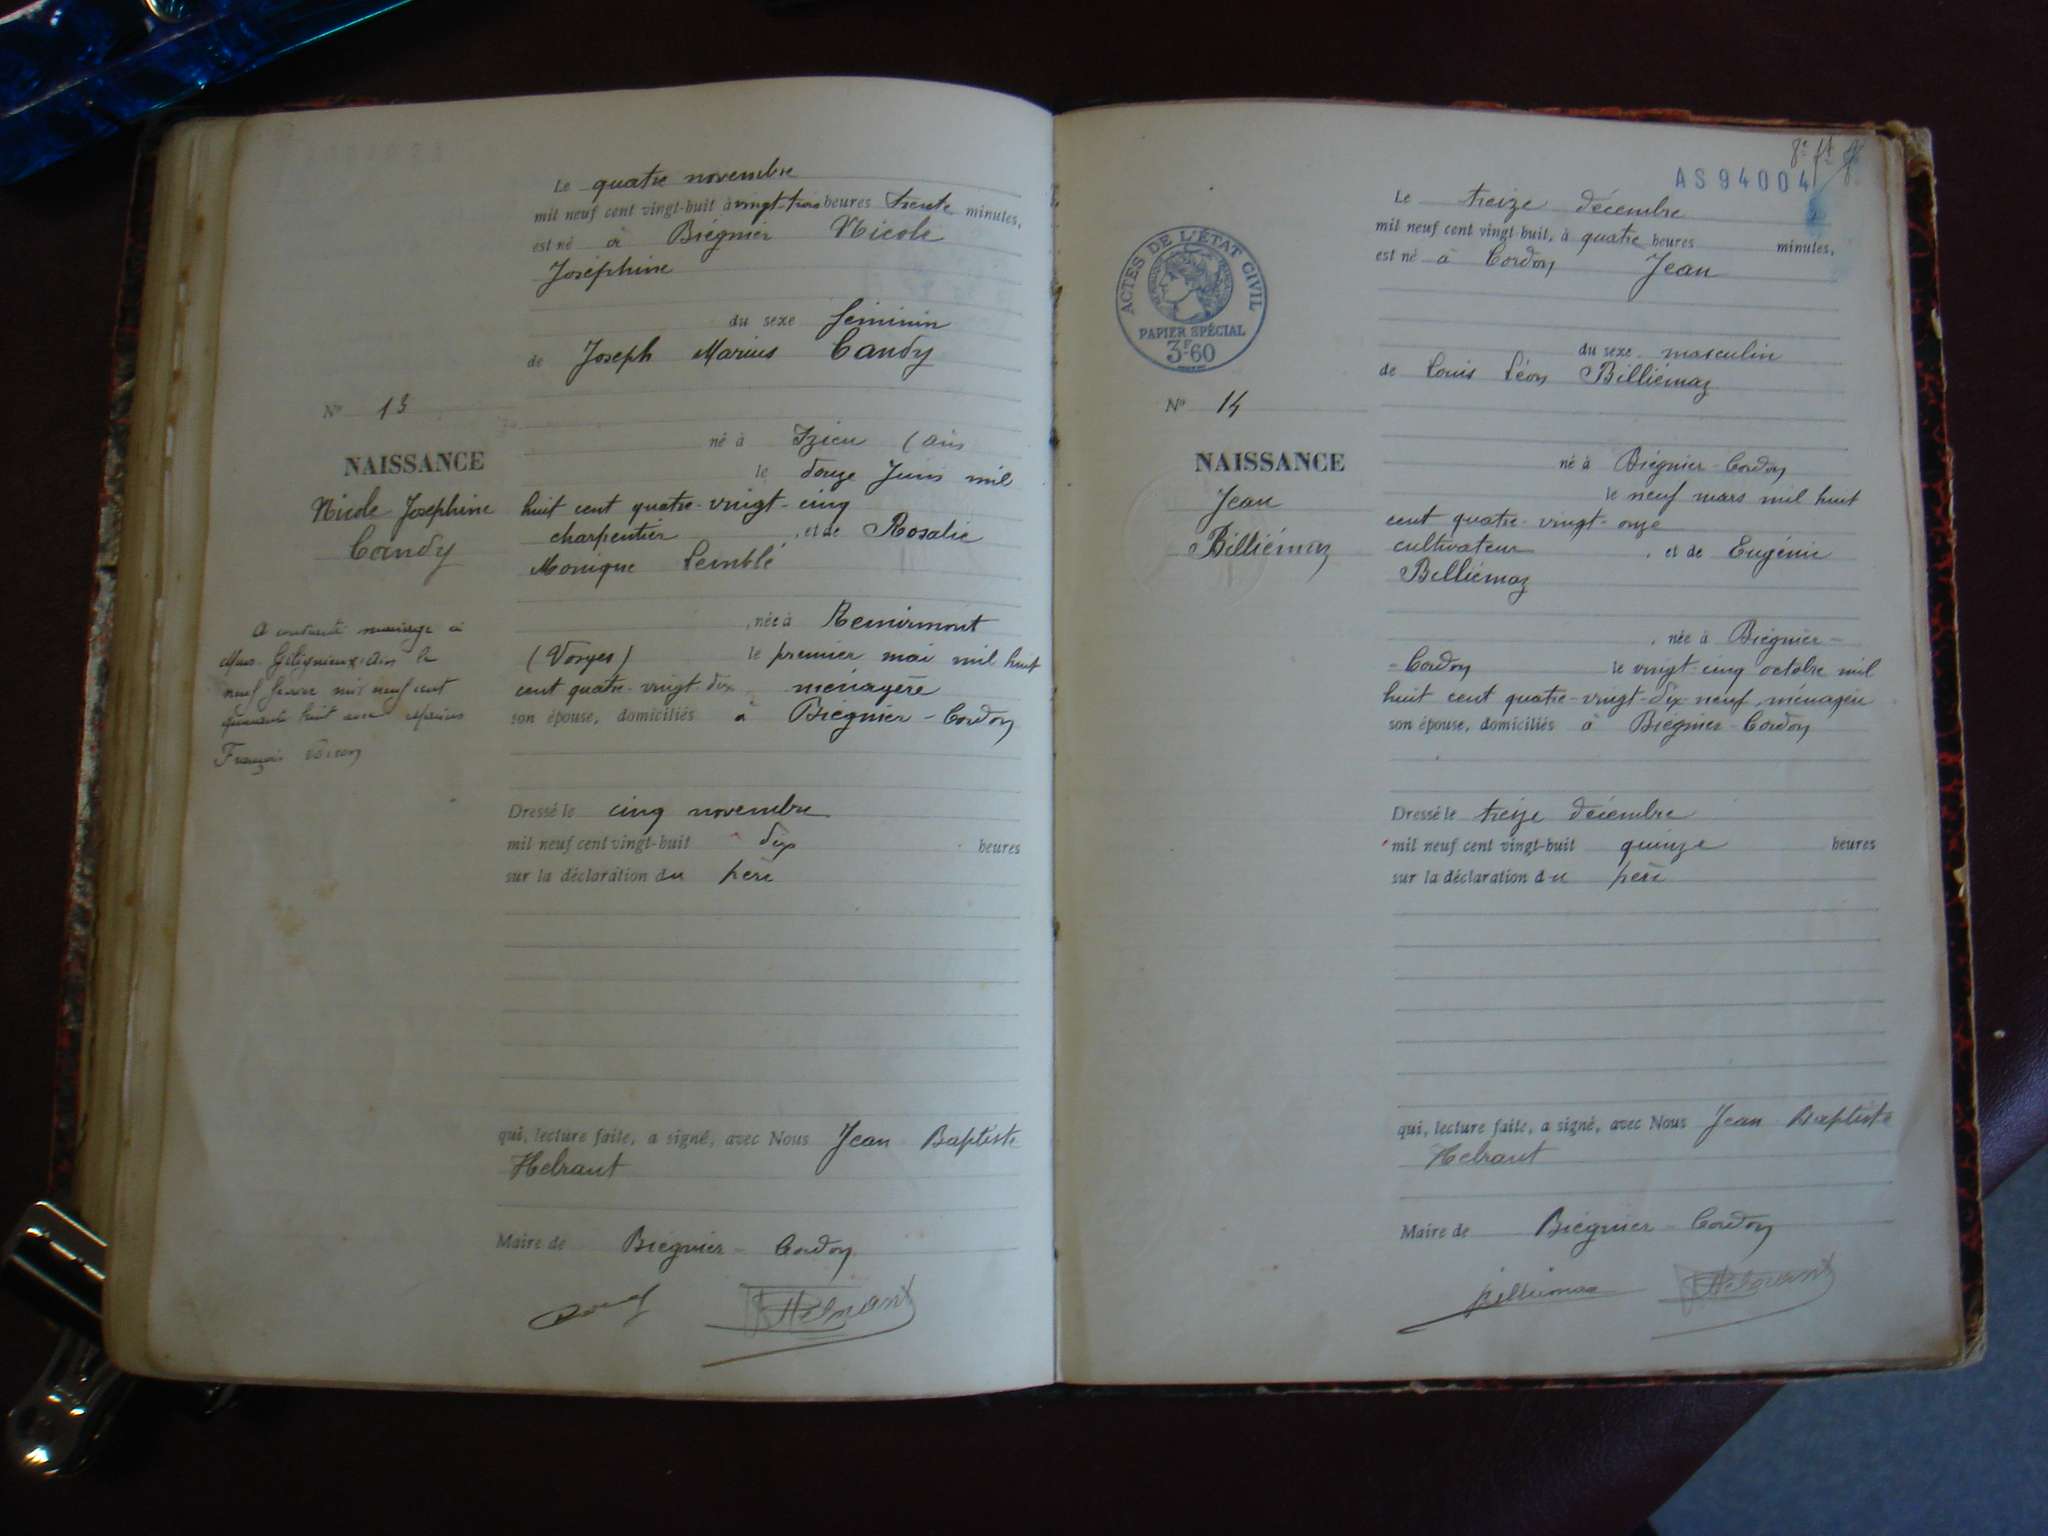 Le quatre novembre
mil neuf cent vingt-huit à vingt-trois heures trente minutes,
est né à Brégnier Nicole
Joséphine
du sexe féminin
de Joseph Marius Candy
N° 13
né à Izieu (Ain
le douze Juin mil
NAISSANCE
Nicole Joséphine
Candy
huit cent quatre-vingt-cinq
charpentier, et de Rosalie
Monique Lemblé
, née à Remiremont
(Vosges) le premier mai mil huit
cent quatre-vingt-dix, ménagère
son épouse, domiciliés à Brégnier-Cordon
A contracté mariage à
Murs-Gélignieux Ain le
neuf mil neuf cent
quarante huit avec
François
Dressé le cinq novembre
mil neuf cent vingt-huit dix heures
sur la déclaration du père
qui, lecture faite, a signé, avec Nous Jean Baptiste
Hébrant
Maire de Brégnier-Cordon
Hébrant
AS94004
Le treize décembre
mil neuf cent vingt-huit, à quatre heures minutes,
est né à Cordon Jean
ACTES DE L'ÉTAT CIVIL
PAPIER SPÉCIAL
3F60
du sexe masculin
de Louis Léon Billiémaz
N° 14
né à Brégnier-Cordon
NAISSANCE
Jean
Billiémaz
le neuf mars mil huit
cent quatre-vingt-onze
cultivateur, et de Eugénie
Billiémaz
, née à Brégnier-
-Cordon le vingt-cinq octobre mil
huit cent quatre-vingt-dix-neuf, ménagère
son épouse, domiciliés à Brégnier-Cordon
Dressé le treize décembre
mil neuf cent vingt-huit quinze heures
sur la déclaration du père
qui, lecture faite, a signé, avec Nous Jean Baptiste
Hébrant
Maire de Brégnier-Cordon
Billiemaz Hébrant